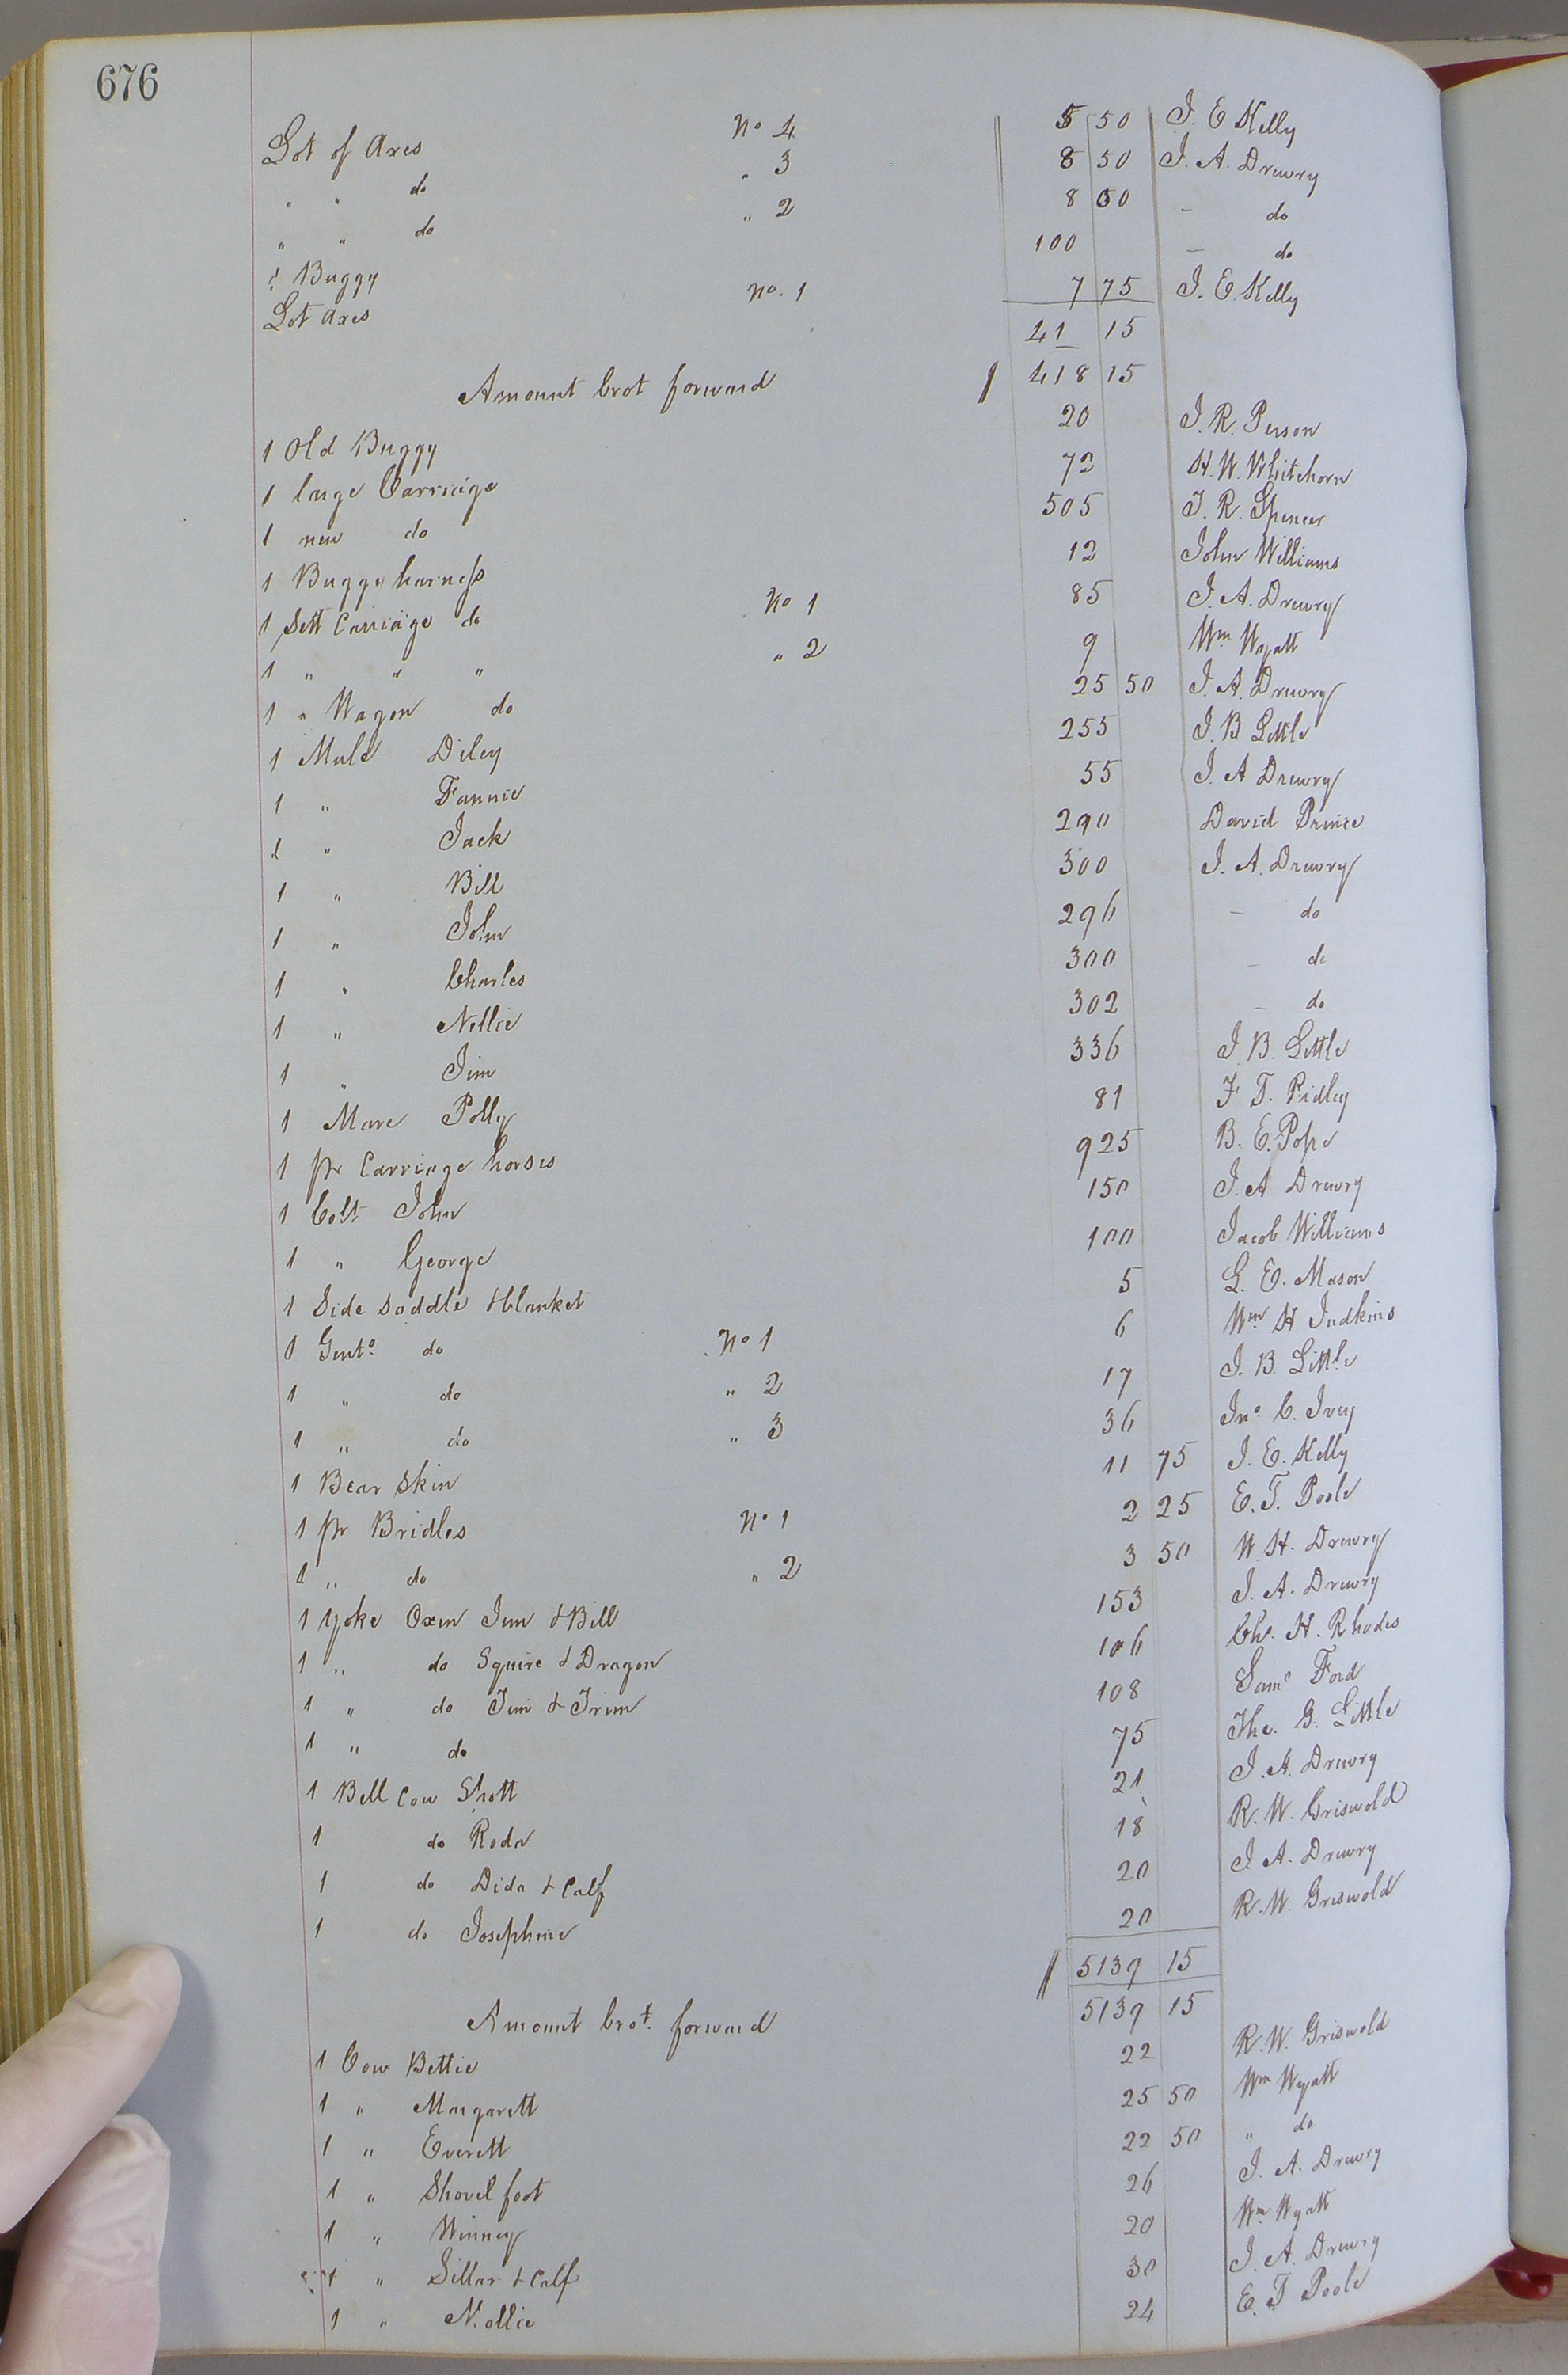 676
Lot of Axes No 4 5 50 J. E Kelly
" " do " 3 8 50 J. A. Drewry
" " do " 2 8 00 - do
1 Buggy 100 - do
Lot Axes No. 1 7 75 J. E. Kelly
41 15
Amount brot forward 418 15
1 Old Buggy 20 J. R. Person
1 large Carriage 72 H. W. Whitehorn
1 new do 505 J. R. Spencer
1 Buggy harness 12 John Williams
1 Sett Carriage do No 1 85 J. A. Drewry
1 " " " " 2 9 Wm Wyatt
1 " Wagon do 25 50 J. A. Drewry
1 Mule Diley 255 J. B Little
1 " Fannie 55 J. A Drewry
1 " Jack 290 David Prince
1 " Bill 300 J. A. Drewry
1 " John 296 - do
1 " Charles 300 - do
1 " Nellie 302 - do
1 " Jim 336 J. B. Little
1 Mare Polly 81 F T. Ridley
1 pr Carriage horses 925 B. E. Pope
1 Colt John 150 J. A Drewry
1 " George 100 Jacob Williams
1 Side Saddle & blanket 5 L. E. Mason
1 Gents do No 1 6 Wm H Judkins
1 " do " 2 17 J. B. Little
1 " do " 3 36 Jno C. Ivey
1 Bear Skin 11 75 J. E. Kelly
1 pr Bridles No 1 2 25 E. T. Poole
1 " do " 2 3 50 W. H. Drewry
1 Yoke Oxen Jim & Bill 153 J. A. Drewry
1 " do Squire & Dragon 106 Chs. H. Rhodes
1 " do Jim & Trim 108 Saml Ford
1 " do 75 Tho. G. Little
1 Bell Cow Shott 21 J. A. Drewry
1 do Roda 18 R. W. Griswold
1 do Dida & Calf 20 J. A. Drewry
1 do Josephine 20 R. W. Griswold
5139 15
Amount brot. forward 5139 15
1 Cow Bettie 22 R. W. Griswold
1 " Margarett 25 50 Wm Wyatt
1 " Everett 22 50 " do
1 " Shovel foot 26 J. A. Drewry
1 " Winney 20 Wm Wyatt
1 " Sillar & Calf 30 J. A. Drewry
1 " Nollie 24 E. T Poole